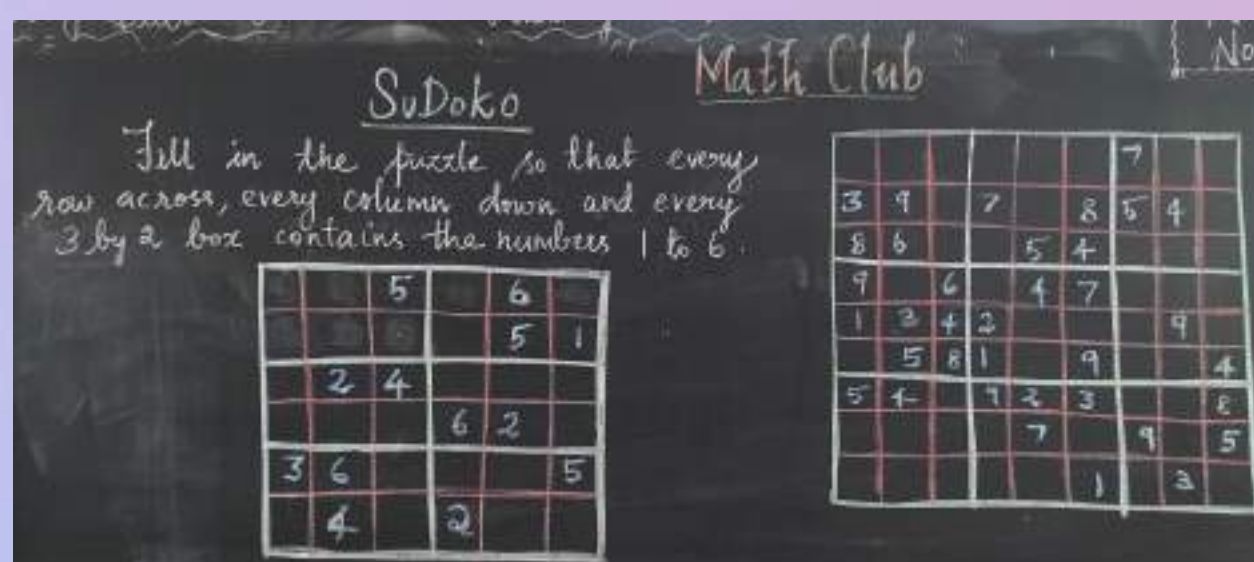 Math Club
No
SuDoko
Fill in the puzzle so that every
row across, every column down and every
3 by 2 box contains the numbers 1 to 6.
5 6
5 1
2 4
6 2
3 6 5
4 2
7
3 9 7 8 5 4
8 6 5 4
9 6 4 7
1 3 4 2 9
5 8 1 9 4
5 4 9 2 3 8
7 9 5
1 3